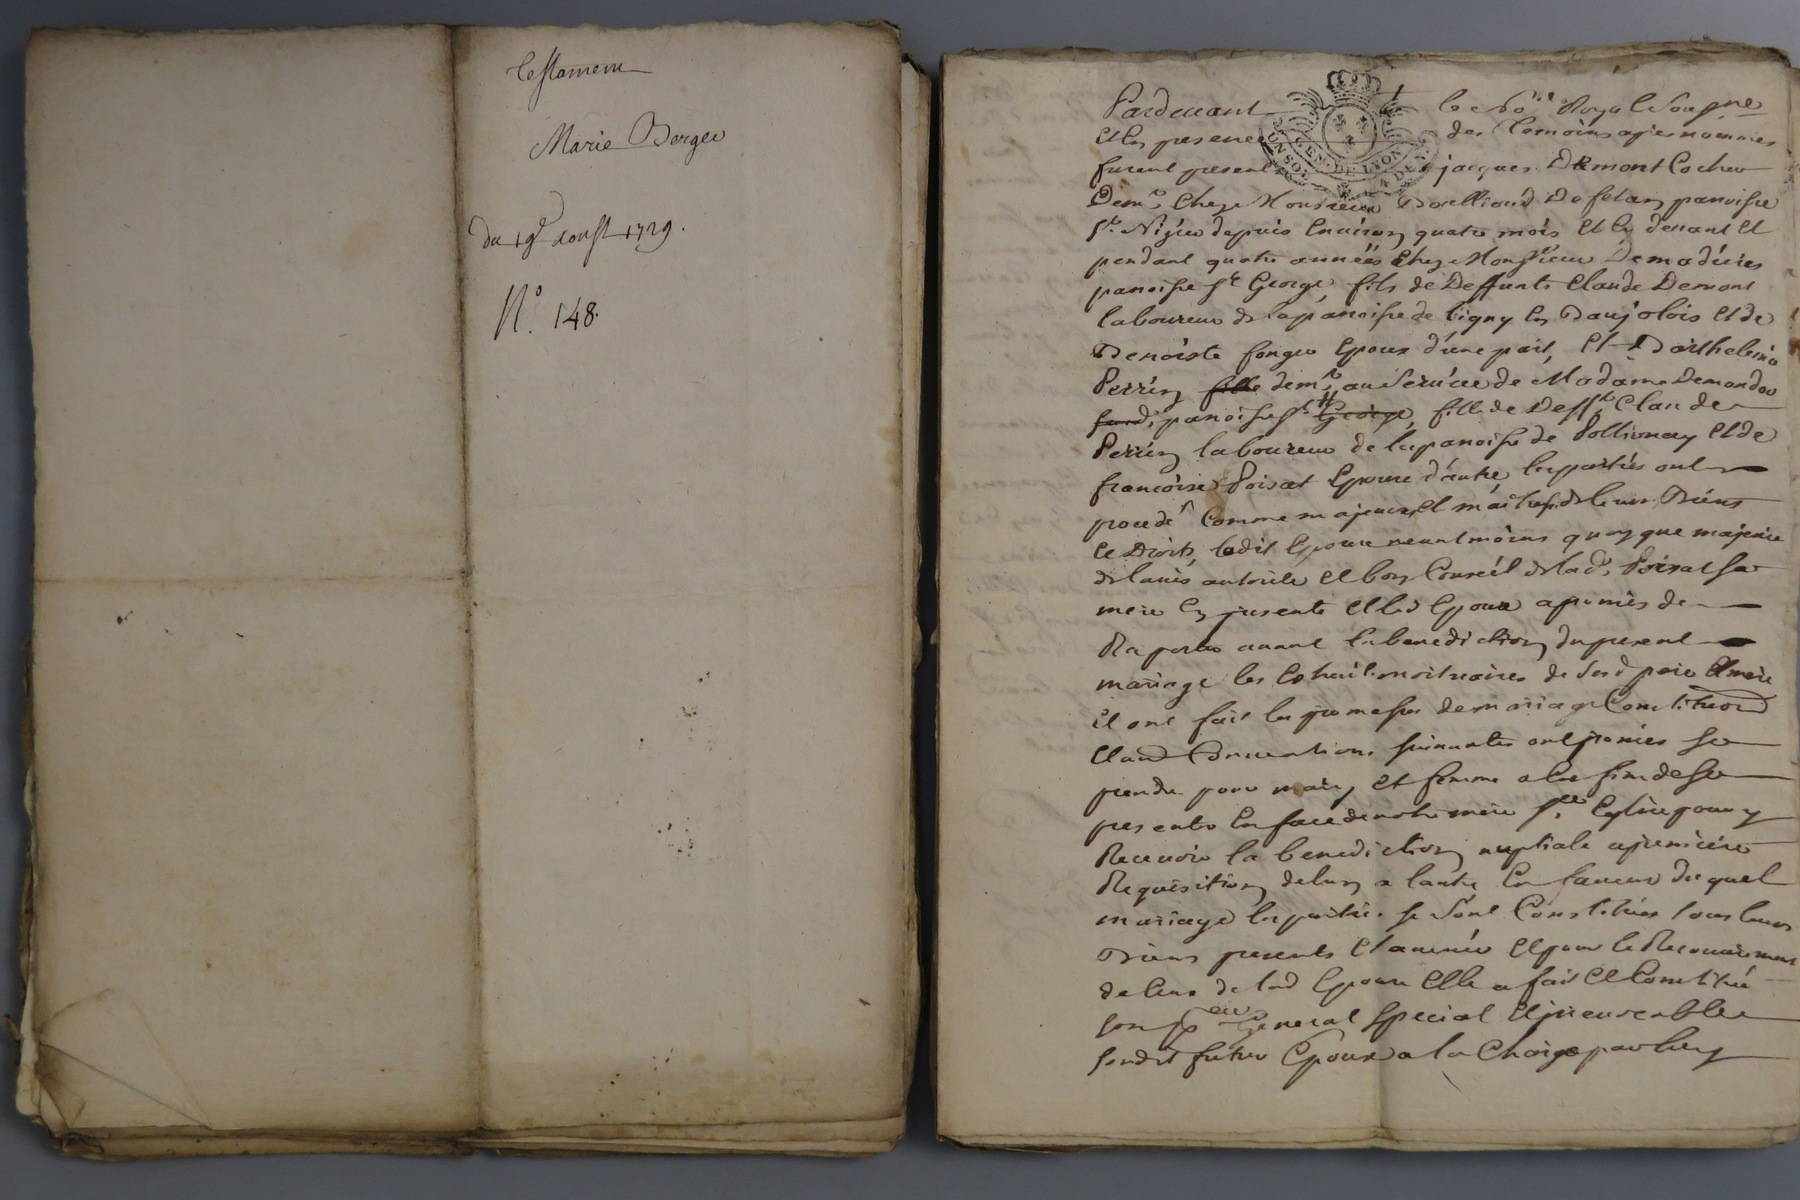 Testament
Marie Berger
du 19e aoust 1729.
N.o 148.
Pardevant le No.re Royal Soussigne
Et En presence des Temoins apres nommes
furent presents jacques Demont Cocher
GEN. DE LYON
Dem.t Chez Monsieur paroisse
St. Nizier depuis Environ quatre mois Et Cy devant Et
pendant quatre années Chez Monsieur Demadieres
paroisse St George, fils de Deffunts Claude Demont
laboureur de la paroisse de Ligny En Baujolois Et de
Benoiste Epoux d'une part, Et Barthelemie
Perrin fille dem.t au Service de Madame
paroisse St George, fille de Deff.t Claude
Perrin laboureur de la paroisse de Pollionay Et de
francoise Poisat Epouse d'autre les parties ont
procedé Comme majeurs Et maitres de leurs Biens
Et Droits, ladit Epouse neantmoins quoy que majeure
de l'avis autorité Et bon Conseil de lad. Poisat sa
mere Cy presente Et led Epoux a promis de
Raporter avant la benediction du present
mariage les Extraits mortuaires de Sesd pere Et mere
Et ont fait les promesses de mariage Constitutions
Et aud Conventions suivantes ont promis se
prendre pour mary Et femme a la fin de se
presenter En face de notre mere Ste Eglise pour y
Recevoir la benediction nuptiale a premiere
Requisition de lun a lautre En faveur du quel
mariage les parties se Sont Constitués tous leurs
Biens presents Et avenir Et pour le Recouvrement
de Ceux de lad Epouse Elle a fait Et Constitué
son pr eur General Special Et irrevocable
sondit futur Epoux a la Charge par luy